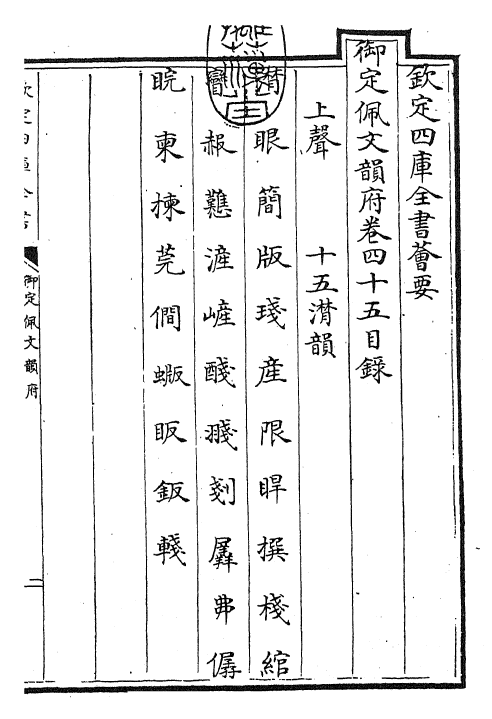 欽定四庫全書薈要
御定佩文韻府卷四十五目錄
上聲 十五潸韻
潸 眼 簡 版 琖 産 限 睅 撰 棧 綰
赧 戁 滻 嵼 醆 剗 羼 弗 僝
睆 柬 揀 莧 僩 蝂 眅 鈑 輚
欽定四庫全書
御定佩文韻府
二